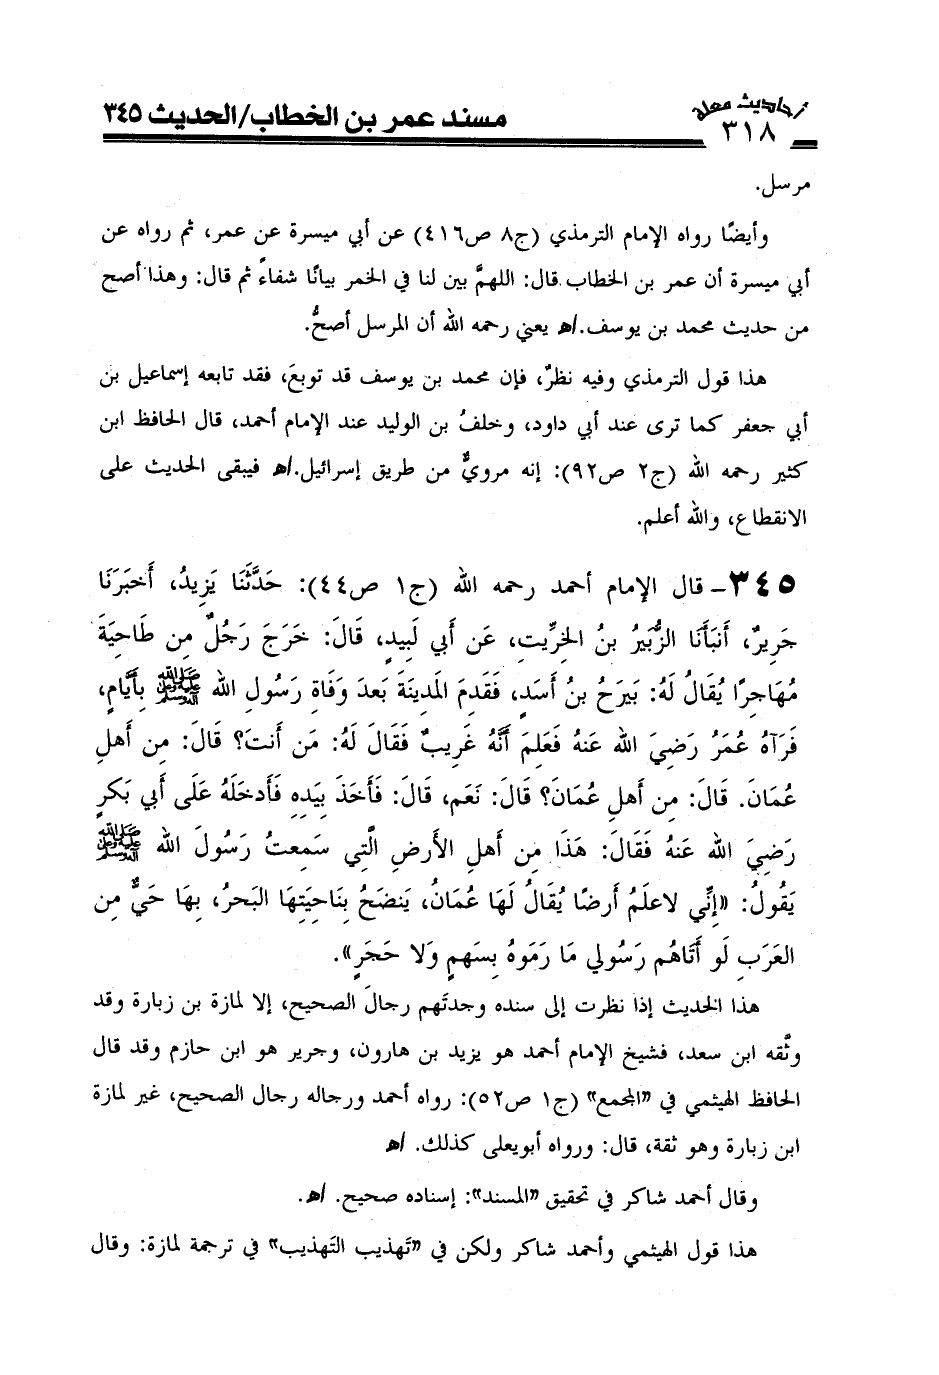 أحاديث معلة
٣١٨
مسند عمر بن الخطاب/الحديث ٣٤٥
مرسل.
وأيضًا رواه الإمام الترمذي (ج٨ ص٤١٦) عن أبي ميسرة عن عمر، ثم رواه عن
أبي ميسرة أن عمر بن الخطاب قال: اللهمَّ بين لنا في الخمر بيانًا شفاءً ثم قال: وهذا أصح
من حديث محمد بن يوسف.اﻫ يعني رحمه الله أن المرسل أصحُّ.
هذا قول الترمذي وفيه نظرٌ، فإن محمد بن يوسف قد توبعَ، فقد تابعه إسماعيل بن
أبي جعفر كما ترى عند أبي داود، وخلفُ بن الوليد عند الإمام أحمد، قال الحافظ ابن
كثير رحمه الله (ج٢ ص٩٢): إنه مرويٌّ من طريق إسرائيل.اﻫ فيبقى الحديث على
الانقطاع، والله أعلم.
٣٤٥- قال الإمام أحمد رحمه الله (ج١ ص٤٤): حَدَّثَنَا يَزِيدُ، أَخبَرَنَا
جَرِيرٌ، أَنبَأَنَا الزُّبَيرُ بنُ الخِرِّيتِ، عَن أَبِي لَبِيدٍ، قَالَ: خَرَجَ رَجُلٌ مِن طَاحِيَةَ
مُهَاجِرًا يُقَالُ لَهُ: بَيرَحُ بنُ أَسَدٍ، فَقَدِمَ المَدِينَةَ بَعدَ وَفَاةِ رَسُولِ الله ﷺ بِأَيَّامٍ،
فَرَآهُ عُمَرُ رَضِيَ الله عَنهُ فَعَلِمَ أَنَّهُ غَرِيبٌ فَقَالَ لَهُ: مَن أَنتَ؟ قَالَ: مِن أَهلِ
عُمَانَ. قَالَ: مِن أَهلِ عُمَانَ؟ قَالَ: نَعَم، قَالَ: فَأَخَذَ بِيَدِهِ فَأَدخَلَهُ عَلَى أَبِي بَكرٍ
رَضِيَ الله عَنهُ فَقَالَ: هَذَا مِن أَهلِ الأَرضِ الَّتِي سَمِعتُ رَسُولَ الله ﷺ
يَقُولُ: «إِنِّي لاعلَمُ أَرضًا يُقَالُ لَهَا عُمَانُ، يَنضَحُ بِنَاحِيَتِهَا البَحرُ، بِهَا حَيٌّ مِن
العَرَبِ لَو أَتَاهُم رَسُولِي مَا رَمَوهُ بِسَهمٍ وَلا حَجَرٍ».
هذا الحديث إذا نظرت إلى سنده وجدتَهم رجالَ الصحيح، إلا لمازة بن زبارة وقد
وثَّقه ابن سعد، فشيخ الإمام أحمد هو يزيد بن هارون، وجرير هو ابن حازم وقد قال
الحافظ الهيثمي في «المجمع» (ج١ ص٥٢): رواه أحمد ورجاله رجال الصحيح، غير لمازة
ابن زبارة وهو ثقة، قال: ورواه أبويعلى كذلك. اﻫ
وقال أحمد شاكر في تحقيق «المسند»: إسناده صحيح. اﻫ.
هذا قول الهيثمي وأحمد شاكر ولكن في «تَهذيب التهذيب» في ترجمة لمازة: وقال